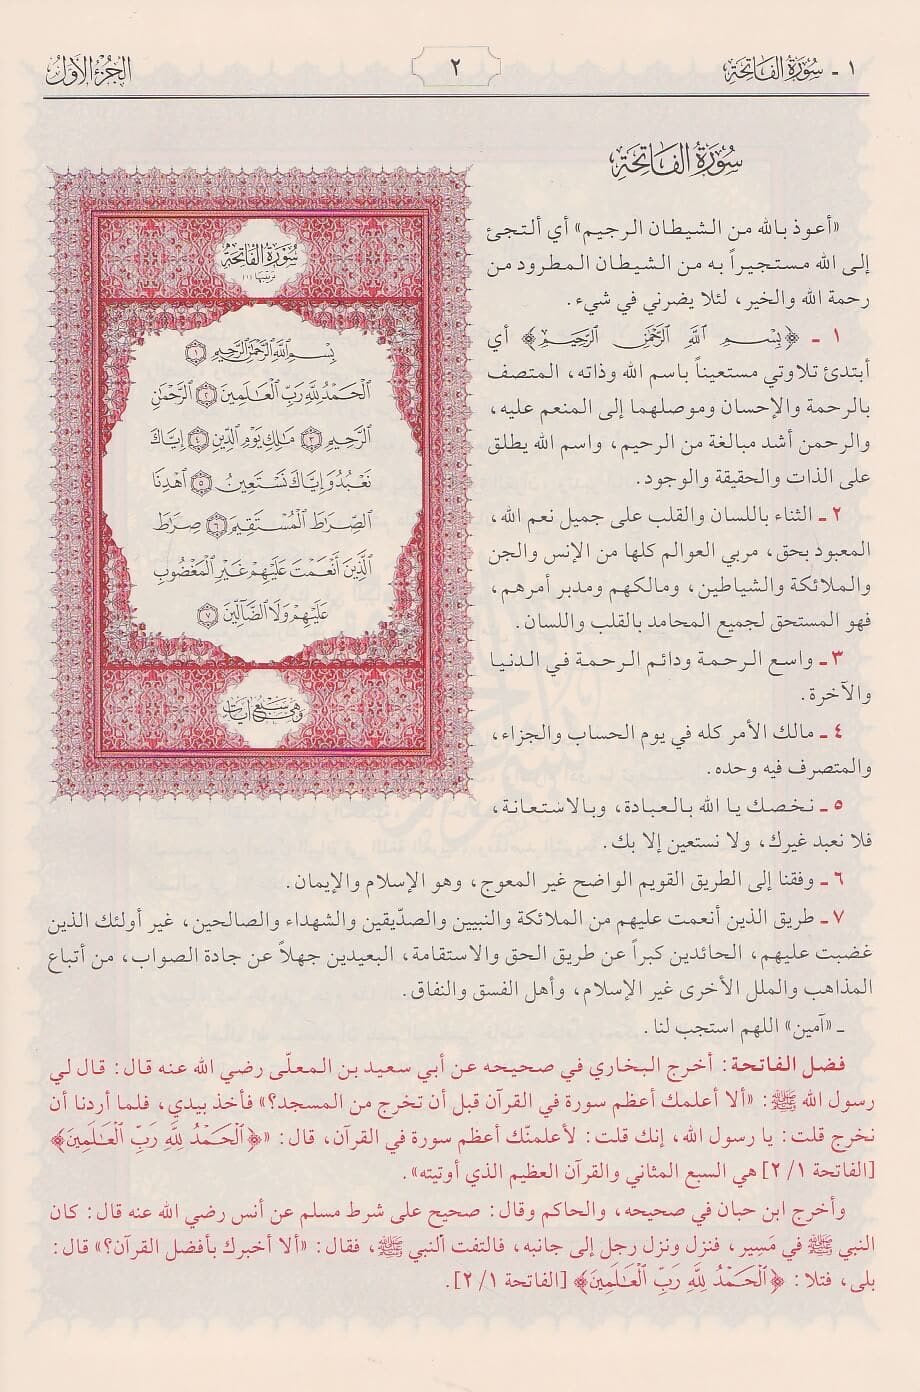 ١ - سُورَةُ الفَاتِحَةِ
٢
الجُزْءُ الأَوَّلُ
سُورَةُ الفَاتِحَةِ
«أعوذ بالله من الشيطان الرجيم» أي ألتجئ
إلى الله مستجيراً به من الشيطان المطرود من
رحمة الله والخير، لئلا يضرني في شيء.
١ - ﴿بِسْمِ ٱللَّهِ ٱلرَّحْمَٰنِ ٱلرَّحِيمِ﴾ أي
أبتدئ تلاوتي مستعيناً باسم الله وذاته، المتصف
بالرحمة والإحسان وموصلهما إلى المنعم عليه،
والرحمن أشد مبالغة من الرحيم، واسم الله يطلق
على الذات والحقيقة والوجود.
٢ - الثناء باللسان والقلب على جميل نعم الله،
المعبود بحق، مربي العوالم كلها من الإنس والجن
والملائكة والشياطين، ومالكهم ومدبر أمرهم،
فهو المستحق لجميع المحامد بالقلب واللسان.
٣ - واسع الرحمة ودائم الرحمة في الدنيا
والآخرة.
٤ - مالك الأمر كله في يوم الحساب والجزاء،
والمتصرف فيه وحده.
٥ - نخصك يا الله بالعبادة، وبالاستعانة،
فلا نعبد غيرك، ولا نستعين إلا بك.
سُورَةُ الفَاتِحَةِ
بِسْمِ ٱللَّهِ ٱلرَّحْمَٰنِ ٱلرَّحِيمِ ١
ٱلْحَمْدُ لِلَّهِ رَبِّ ٱلْعَٰلَمِينَ ٢ ٱلرَّحْمَٰنِ
ٱلرَّحِيمِ ٣ مَٰلِكِ يَوْمِ ٱلدِّينِ ٤ إِيَّاكَ
نَعْبُدُ وَإِيَّاكَ نَسْتَعِينُ ٥ ٱهْدِنَا
ٱلصِّرَٰطَ ٱلْمُسْتَقِيمَ ٦ صِرَٰطَ
ٱلَّذِينَ أَنْعَمْتَ عَلَيْهِمْ غَيْرِ ٱلْمَغْضُوبِ
عَلَيْهِمْ وَلَا ٱلضَّآلِّينَ ٧
وَهِيَ سَبْعُ آيَاتٍ
٦ - وفقنا إلى الطريق القويم الواضح غير المعوج، وهو الإسلام والإيمان.
٧ - طريق الذين أنعمت عليهم من الملائكة والنبيين والصدّيقين والشهداء والصالحين، غير أولئك الذين
غضبت عليهم، الحائدين كبراً عن طريق الحق والاستقامة، البعيدين جهلاً عن جادة الصواب، من أتباع
المذاهب والملل الأخرى غير الإسلام، وأهل الفسق والنفاق.
ـ «آمين» اللهم استجب لنا.
فضل الفاتحة: أخرج البخاري في صحيحه عن أبي سعيد بن المعلّى رضي الله عنه قال: قال لي
رسول الله ﷺ: «ألا أعلمك أعظم سورة في القرآن قبل أن تخرج من المسجد؟» فأخذ بيدي، فلما أردنا أن
نخرج قلت: يا رسول الله، إنك قلت: لأعلمنّك أعظم سورة في القرآن، قال: «﴿ٱلْحَمْدُ لِلَّهِ رَبِّ ٱلْعَٰلَمِينَ﴾
[الفاتحة ١/ ٢] هي السبع المثاني والقرآن العظيم الذي أوتيته».
وأخرج ابن حبان في صحيحه، والحاكم وقال: صحيح على شرط مسلم عن أنس رضي الله عنه قال: كان
النبي ﷺ في مَسِير، فنزل ونزل رجل إلى جانبه، فالتفت النبي ﷺ، فقال: «ألا أخبرك بأفضل القرآن؟» قال:
بلى، فتلا: ﴿ٱلْحَمْدُ لِلَّهِ رَبِّ ٱلْعَٰلَمِينَ﴾ [الفاتحة ١/ ٢].